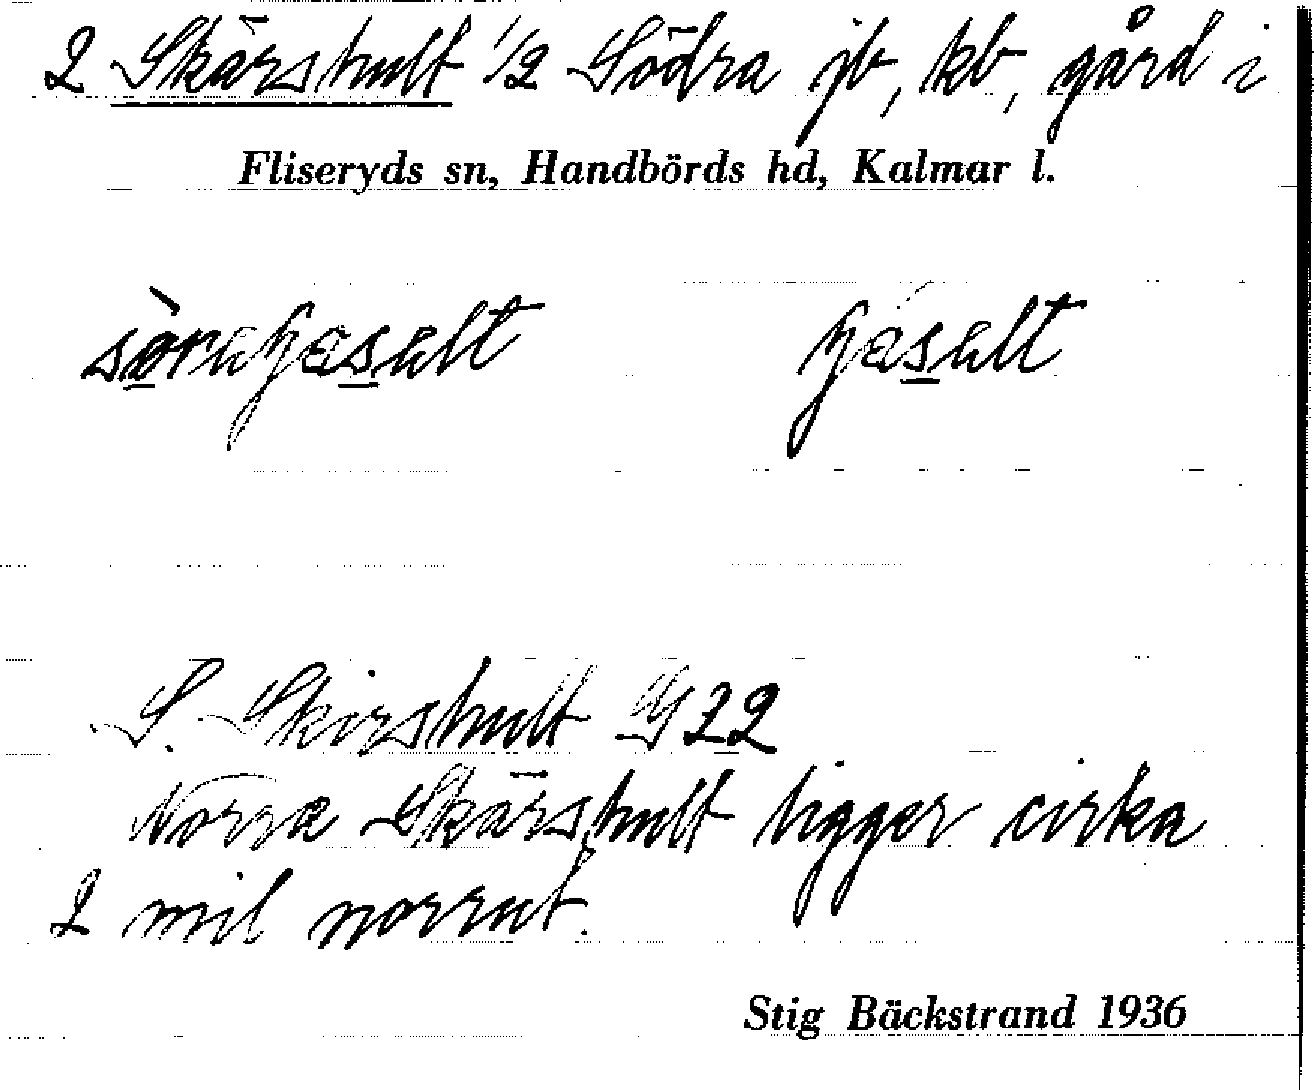 2 Skärshult 1/2 Södra jb, kb, gård i
Fliseryds sn, Handbörds hd, Kalmar l.
S. Skirshult
Norra Skärshult ligger cirka
2 mil norrut.
Stig Bäckstrand 1936